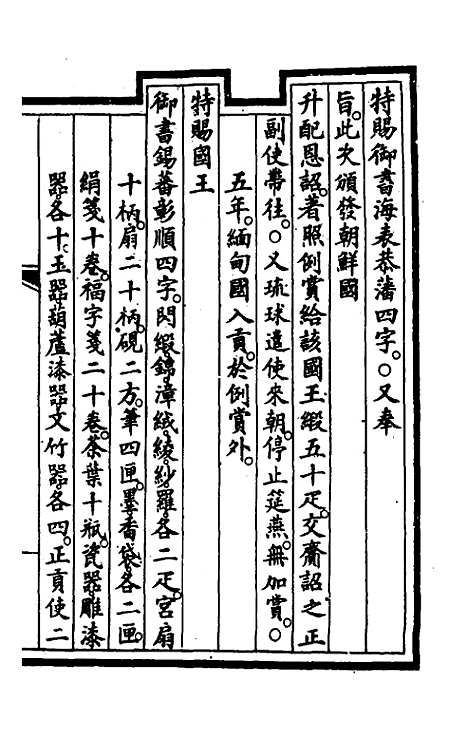 特賜御書海表恭藩四字。○又奉
旨。此次頒發朝鮮國
升配恩詔。著照例賞給該國王緞五十疋。交齎詔之正
副使帶往。○又琉球遣使來朝。停止筵燕。無加賞。○
五年。緬甸國入貢。於例賞外。
特賜國王
御書錫蕃彰順四字。閃緞。錦。漳絨。綾。紗。羅。各二疋。宮扇
十柄。扇二十柄。硯二方。筆四匣。墨。香袋。各二匣。
絹箋十卷。福字箋二十卷。茶葉十瓶。瓷器。雕漆
器。各十。玉器。葫蘆漆器。文竹器。各四。正貢使二